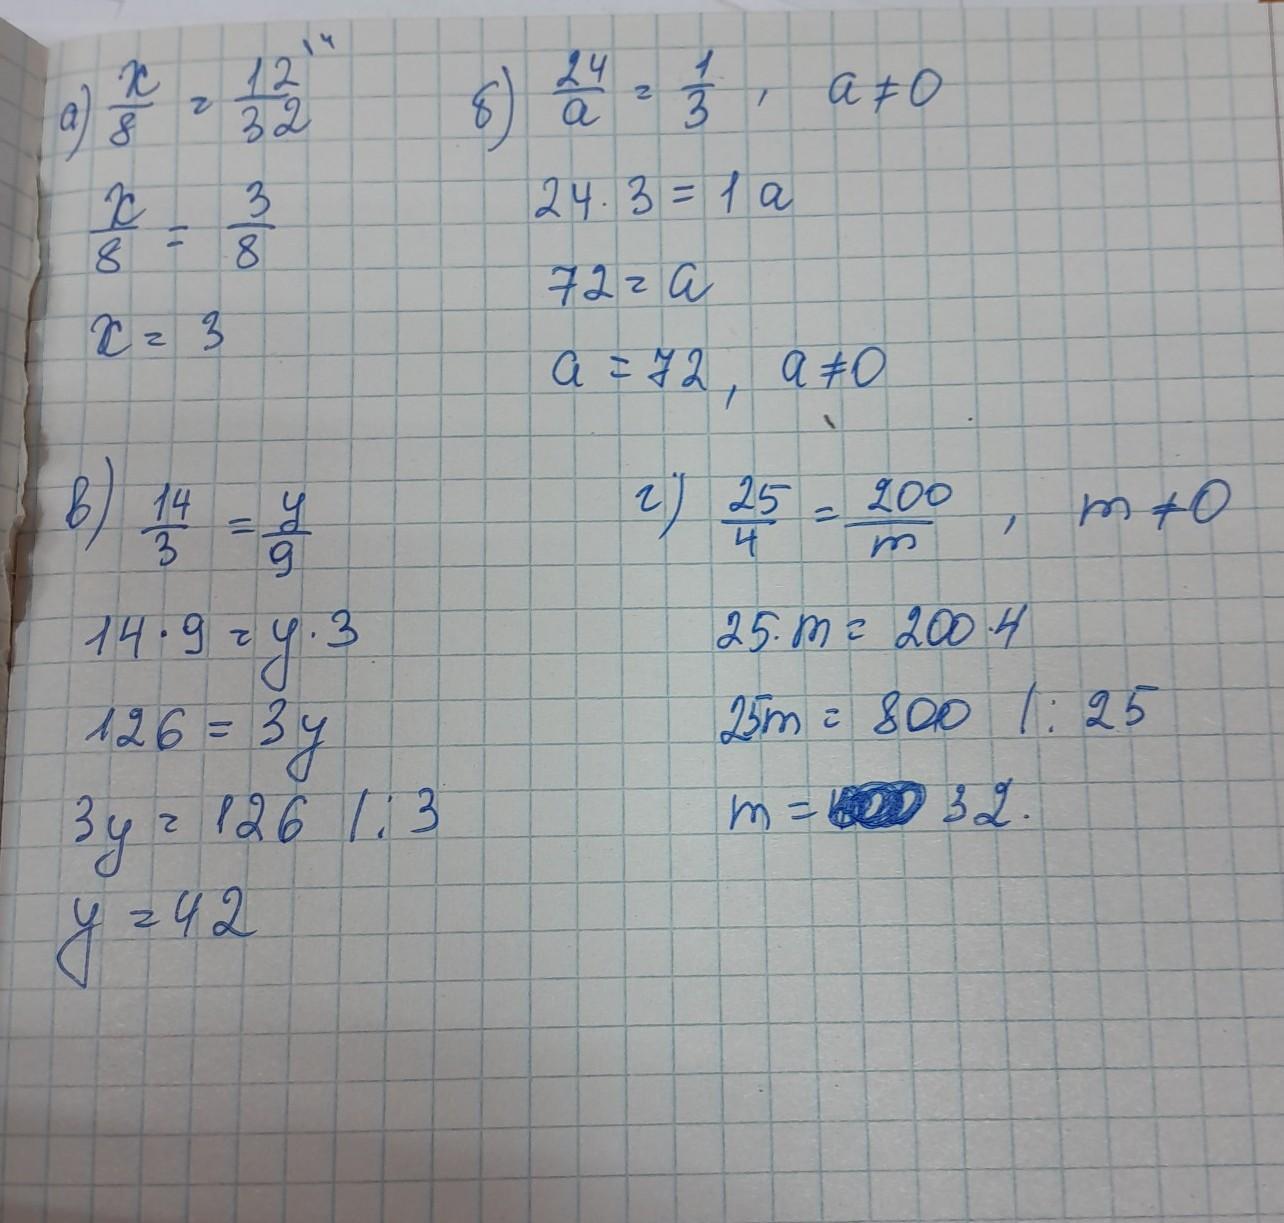 а) x/8 = 12/32 \4
x/8 = 3/8
x = 3
б) 24/a = 1/3 , a ≠ 0
24 · 3 = 1 a
72 = a
a = 72 , a ≠ 0
в) 14/3 = y/9
14 · 9 = y · 3
126 = 3y
3y = 126 | : 3
y = 42
г) 25/4 = 200/m , m ≠ 0
25 · m = 200 · 4
25m = 800 | : 25
m = 32.